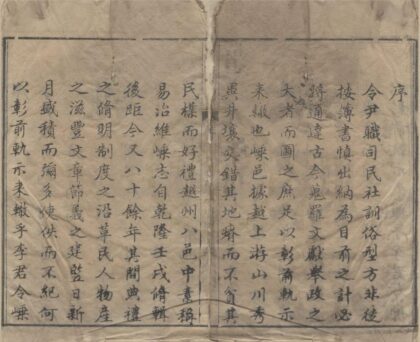 序
令尹職司民社訓俗型方非徒
按簿書慎出納為目前之計必
將通達古今蒐羅文獻舉政之
大者而圖之庶足以彰前軌示
來也嵊邑據越上游山川秀
異井壤交錯其地瘠而不貧其
民樸而好禮越州八邑中素稱
易治維嵊志自乾隆壬戌脩輯
後距今又八十餘年其間典禮
之脩明制度之沿革民人物產
之滋豐文章節義之建豎日新
月盛積而彌多佚而不紀何
以彰前軌示來轍乎李君令嵊